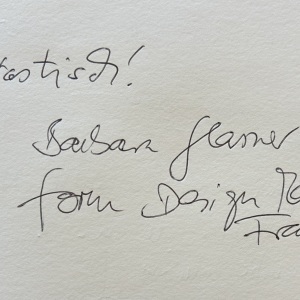 tastisch!
Barbara Glasner
form Design
Fra